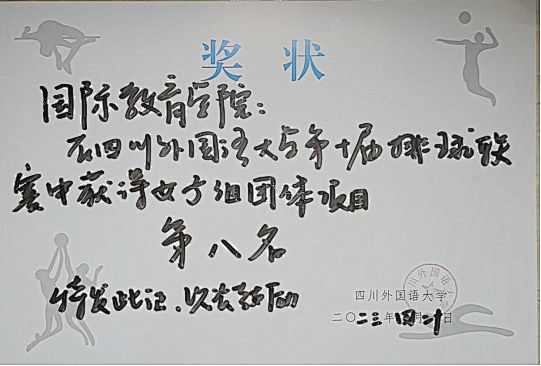 奖状
国际教育学院:
在四川外国语大学第十届排球联
赛中获得女子组团体项目
第八名
特发此证、以资鼓励
四川外国语大学
二〇二三年四月二十日